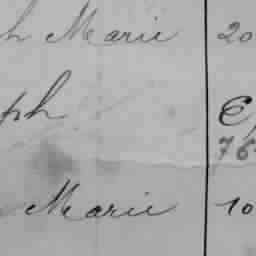 h Marie 20
ph
76
Marie 10